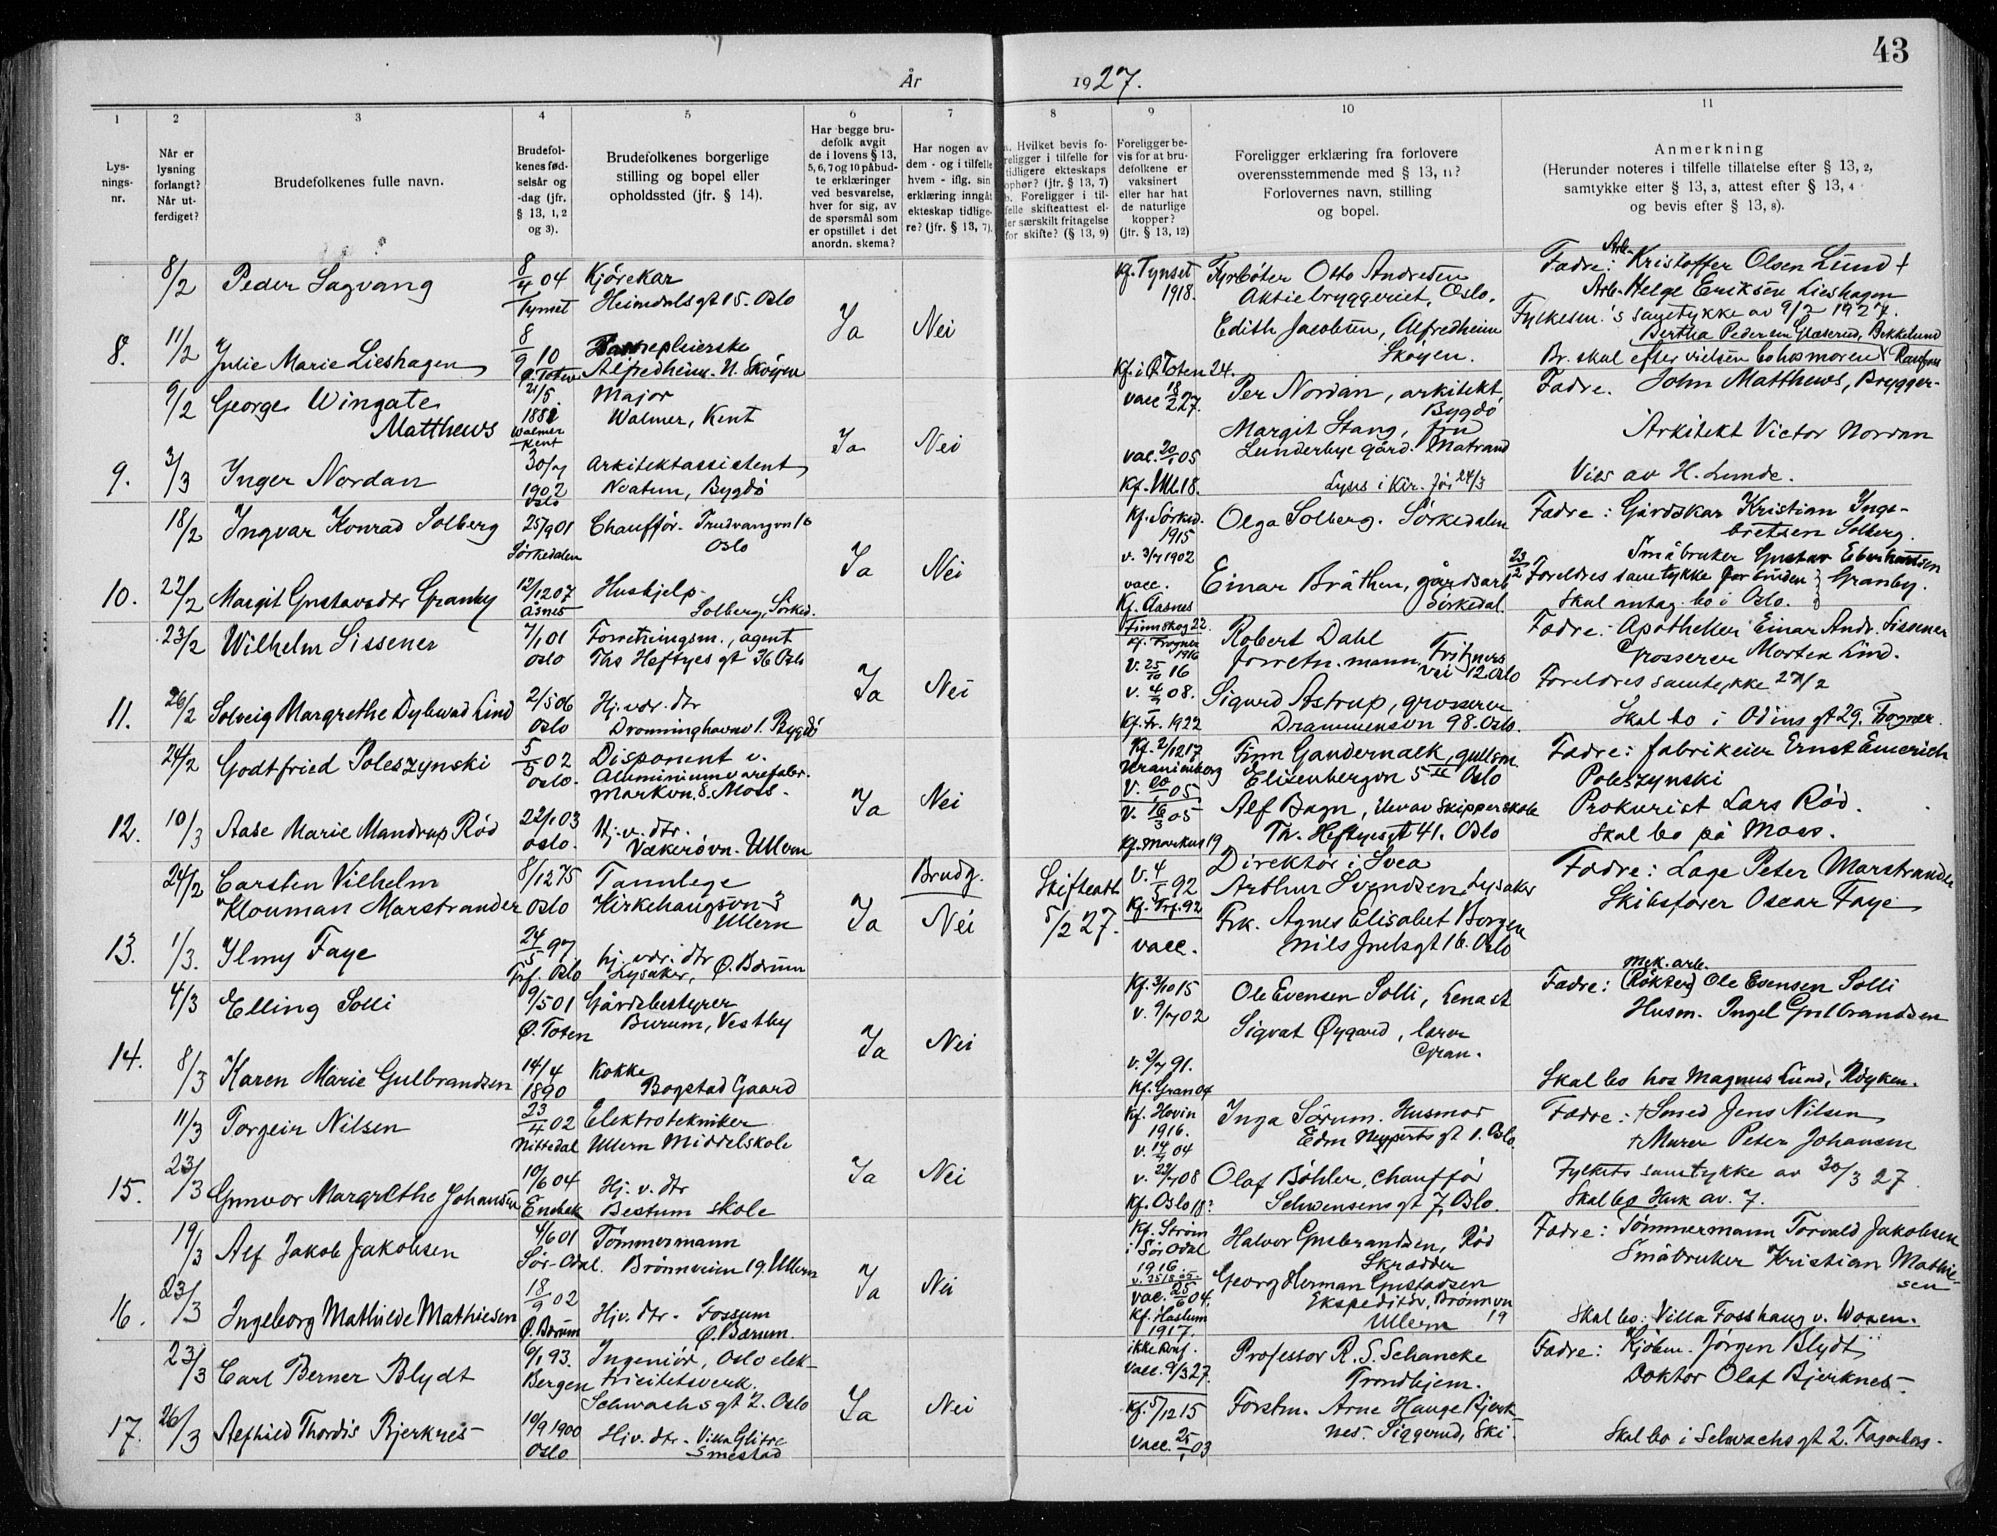 43
År 1927.
1 2 3 4 5 6 7 8 9 10 11
Lys-
nings-
nr.
Når er
lysning
forlangt?
Når ut-
ferdiget?
Brudefolkenes fulle navn.
Brudefol-
kenes fød-
selsår og
-dag (jfr.
§ 13, 1, 2
og 3).
Brudefolkenes borgerlige
stilling og bopel eller
opholdssted (jfr. § 14).
Har begge bru-
defolk avgit
de i lovens § 13,
5, 6, 7 og 10 påbud-
te erklæringer
ved besvarelse,
hver for sig, av
de spørsmål som
er opstillet i det
anordn. skema?
Har nogen av
dem - og i tilfelle
hvem - iflg. sin
erklæring inngåt
ekteskap tidlige-
re? (jfr. § 13, 7).
a. Hvilket bevis fo-
religger i tilfelle for
tidligere ekteskaps
ophør? (jfr. § 13, 7)
b. Foreligger i til-
felle skifteattest el-
ler særskilt fritagelse
for skifte? (§ 13, 9)
Foreligger be-
vis for at bru-
defolkene er
vaksinert
eller har hat
de naturlige
kopper?
(jfr. § 13, 12)
Foreligger erklæring fra forlovere
overensstemmende med § 13, 11?
Forlovernes navn, stilling
og bopel.
Anmerkning
(Herunder noteres i tilfelle tillatelse efter § 13, 2,
samtykke etter § 13, 3, attest efter § 13, 4
og bevis efter § 13, 8).
8/2 Peder Sagvang 8/4 04 Tynset Kjørekar
Heimdalsgt 15. Oslo
Kf. Tynset 1918.
Fyrbøter Otto Andresen
Aktiebryggeriet, Oslo.
Fædre: Arb. Kristoffer Olsen Lund †
Arb. Helge Eriksen Lieshagen
Ja Nei
Edith Jacobsen, Alfredheim
Skøyen.
Fylkesm.'s samtykke av 9/2 1927.
8. 11/2 Julie Marie Lieshagen 8/9 10 Ø. Toten
Alfredheim. N. Skøyen
Kf. i Ø Toten 24.
Br. skal efter vielsen bo hos moren
9/2 George Wingate
Matthews
21/5 1881 Walmer Kent
Major
Walmer, Kent
vacc 18/2 27.
Per Nordan, arkitekt,
Bygdø
Fædre. John Matthews, Brygger-
Arkitekt Victor Nordan
Ja Nei
Margit Stang, fru
Lunderbye gård. Matrand
9. 3/3 Inger Nordan 30/7 1902 Oslo
Arkitektassistent
Noatun, Bygdø
vac. 20/1 05
Kf. Ull 18.
Lyses i Kir. før 24/3
Vies av H. Lunde.
18/2 Ingvar Konrad Solberg 25/9 01 Sørkedalen
Chauffør. Trudvangvn 10
Oslo
Kf. Sørked. 1915
v. 3/7 1902
Olga Solberg. Sørkedalen
Fædre: Gårdskar Kristian Inge-
bretsen Solberg.
Småbruker Gustav Eberhardsen
Granby.
Ja Nei
10. 22/2 Margit Gustavsdtr Granby 12/12 07 Åsnes
Hushjelp
Solberg, Sørked.
vacc.
Kf. Aasnes Finnskog 22.
Einar Bråthen, gårdsarb
Sørkedal.
23/2 Foreldres samtykke for bruden
Skal antag. bo i Oslo.
23/2 Wilhelm Sissener 7/1 01 Oslo
Forretningsm., agent
Ths Heftyes gt 36 Oslo
Kf. Frogner 1916
v. 25/10 16
Robert Dahl
forretn. mann, Fritzners
vei 12 Oslo
Fædre. Apotheker Einar Andr. Sissener
Grosserer Morten Lind.
Ja Nei
11. 26/2 Solveig Margrethe Dybwad Lind 2/5 06 Oslo
Hj. vær. dtr
Dronninghavnv 1. Bygdø
v. 4/9 08.
Kf. Fr. 1922
Sigurd Astrup, grosserer
Drammensvn 98. Oslo.
Foreldres samtykke 27/2
Skal bo i Odins gt 29. Frogner.
24/2 Godtfried Poleszynski 5/5 02 Oslo.
Disponent v.
Aluminiumvarefabr.
Markvn. 8. Moss.
Kf. 2/12 17 Uranienborg
Finn Gandernack, gullsm.
Elisenbergvn 5 II Oslo
Fædre: fabrikeier Ernst Emerich
Poleszynski
Prokurist Lars Rød.
Ja Nei
12. 10/3 Aase Marie Mandrup Rød 22/1 03 Oslo.
Hj. v. dtr.
Vækerøvn. Ullern
v. 16/3 05
Kf. Markus 19
Alf Bagn, elev av skipperskole
Th. Heftyesgt 41. Oslo
Skal bo på Moss.
24/2 Carsten Vilhelm
Klouman Marstrander
8/12 75 Oslo
Tannlege
Kirkehaugsvn 3
Ullern
Ja
Brudg.
Nei
Skifteatt.
5/2 27.
v. 4/5 92
Kf. Trf. 92
Direktør i Svea
Arthur Svendsen Lysaker
Fædre: Læge Peter Marstrander
Skibsfører Oscar Faye
13. 1/3. Ilmy Faye 24/5 97 Trf. Oslo
hj. vær. dtr
Lysaker, Ø. Bærum
vacc.
Frk. Agnes Elisabet Borgen
Nils Juelsgt 16. Oslo
4/3 Elling Solli 9/5 01 Ø. Toten
Gårdsbestyrer
Burum, Vestby
Kf. 3/10 15
v. 9/7 02
Ole Evensen Solli, Lena st
Mek. arb.
Fædre: (Røkter) Ole Evensen Solli
Husm. Ingel Gulbrandsen
Ja Nei
Sigvat Øygard, lærer
Gran.
14. 8/3 Karen Marie Gulbrandsen 14/4 1890
Kokke
Bogstad Gaard
v. 2/7 91.
Kf. Gran 04
Skal bo hos Magnus Lund, Røyken.
11/3 Torgein Nilsen 23/4 02 Nittedal
Elektrotekniker
Ullern Middelskole
Kf. Hovin 1916.
v. 14/9 04
Inga Sørum. Husmor
Edm Neuperts gt 1. Oslo.
Fædre: † Smed Jens Nilsen
† Murer Peter Johansen
Ja Nei
15. 23/3 Gunvor Margrethe Johansen 10/6 04 Enebak
Hj. v. dtr
Bestum skole
v. 22/7 08
Kf. Oslo 18?
Olaf Bøhler, chauffør
Schwensens gt 7, Oslo.
Fylkets samtykke av 30/3 27.
19/3 Alf Jakob Jakobsen 4/6 01 Sør-Odal.
Tømmermann
Brønnveien 19. Ullern
Kf. Strøm i Sør Odal 1916
Halvor Gulbrandsen, Rød
Skrædder
Fædre: Tømmermann Torvald Jakobsen
Småbruker Kristian Mathie-
sen
Ja Nei
16. 23/3 Ingeborg Mathilde Mathiesen 18/9 02 Ø. Bærum
Hjv. dtr. Fossum
Ø. Bærum.
vac. 25/6 04.
Kf. Haslum 1917.
Georg Herman Gustadsen
Ekspeditør, Brønnvn 19
Ullern
Skal bo: Villa Fosshaug v. Voxen.
23/3 Carl Berner Blydt 6/1 93. Bergen
Ingeniør, Oslo elek-
tricitetsverk.
Schwachs gt 2. Oslo
ikke konf.
vacc. 9/3 27.
Professor R. S. Schancke
Trondhjem.
Fædre: Kjøbm. Jørgen Blydt
Doktor Olaf Bjerknes.
Ja Nei
17. 26/3 Alfhild Thordis Bjerknes 19/9 1900 Oslo
Hjv. dtr. Villa Glitre
Smestad
Kf. 5/12 15
vacc. 25/1 03
Forstm. Arne Hauge Bjerk-
nes. Siggerud, Ski.
Skal bo i Schwachs gt 2. Fagerborg.